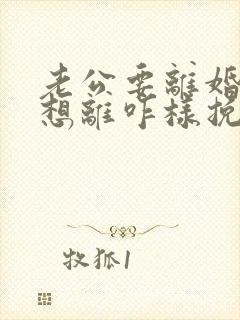 老公要離婚
想離咋樣挽
牧狐1